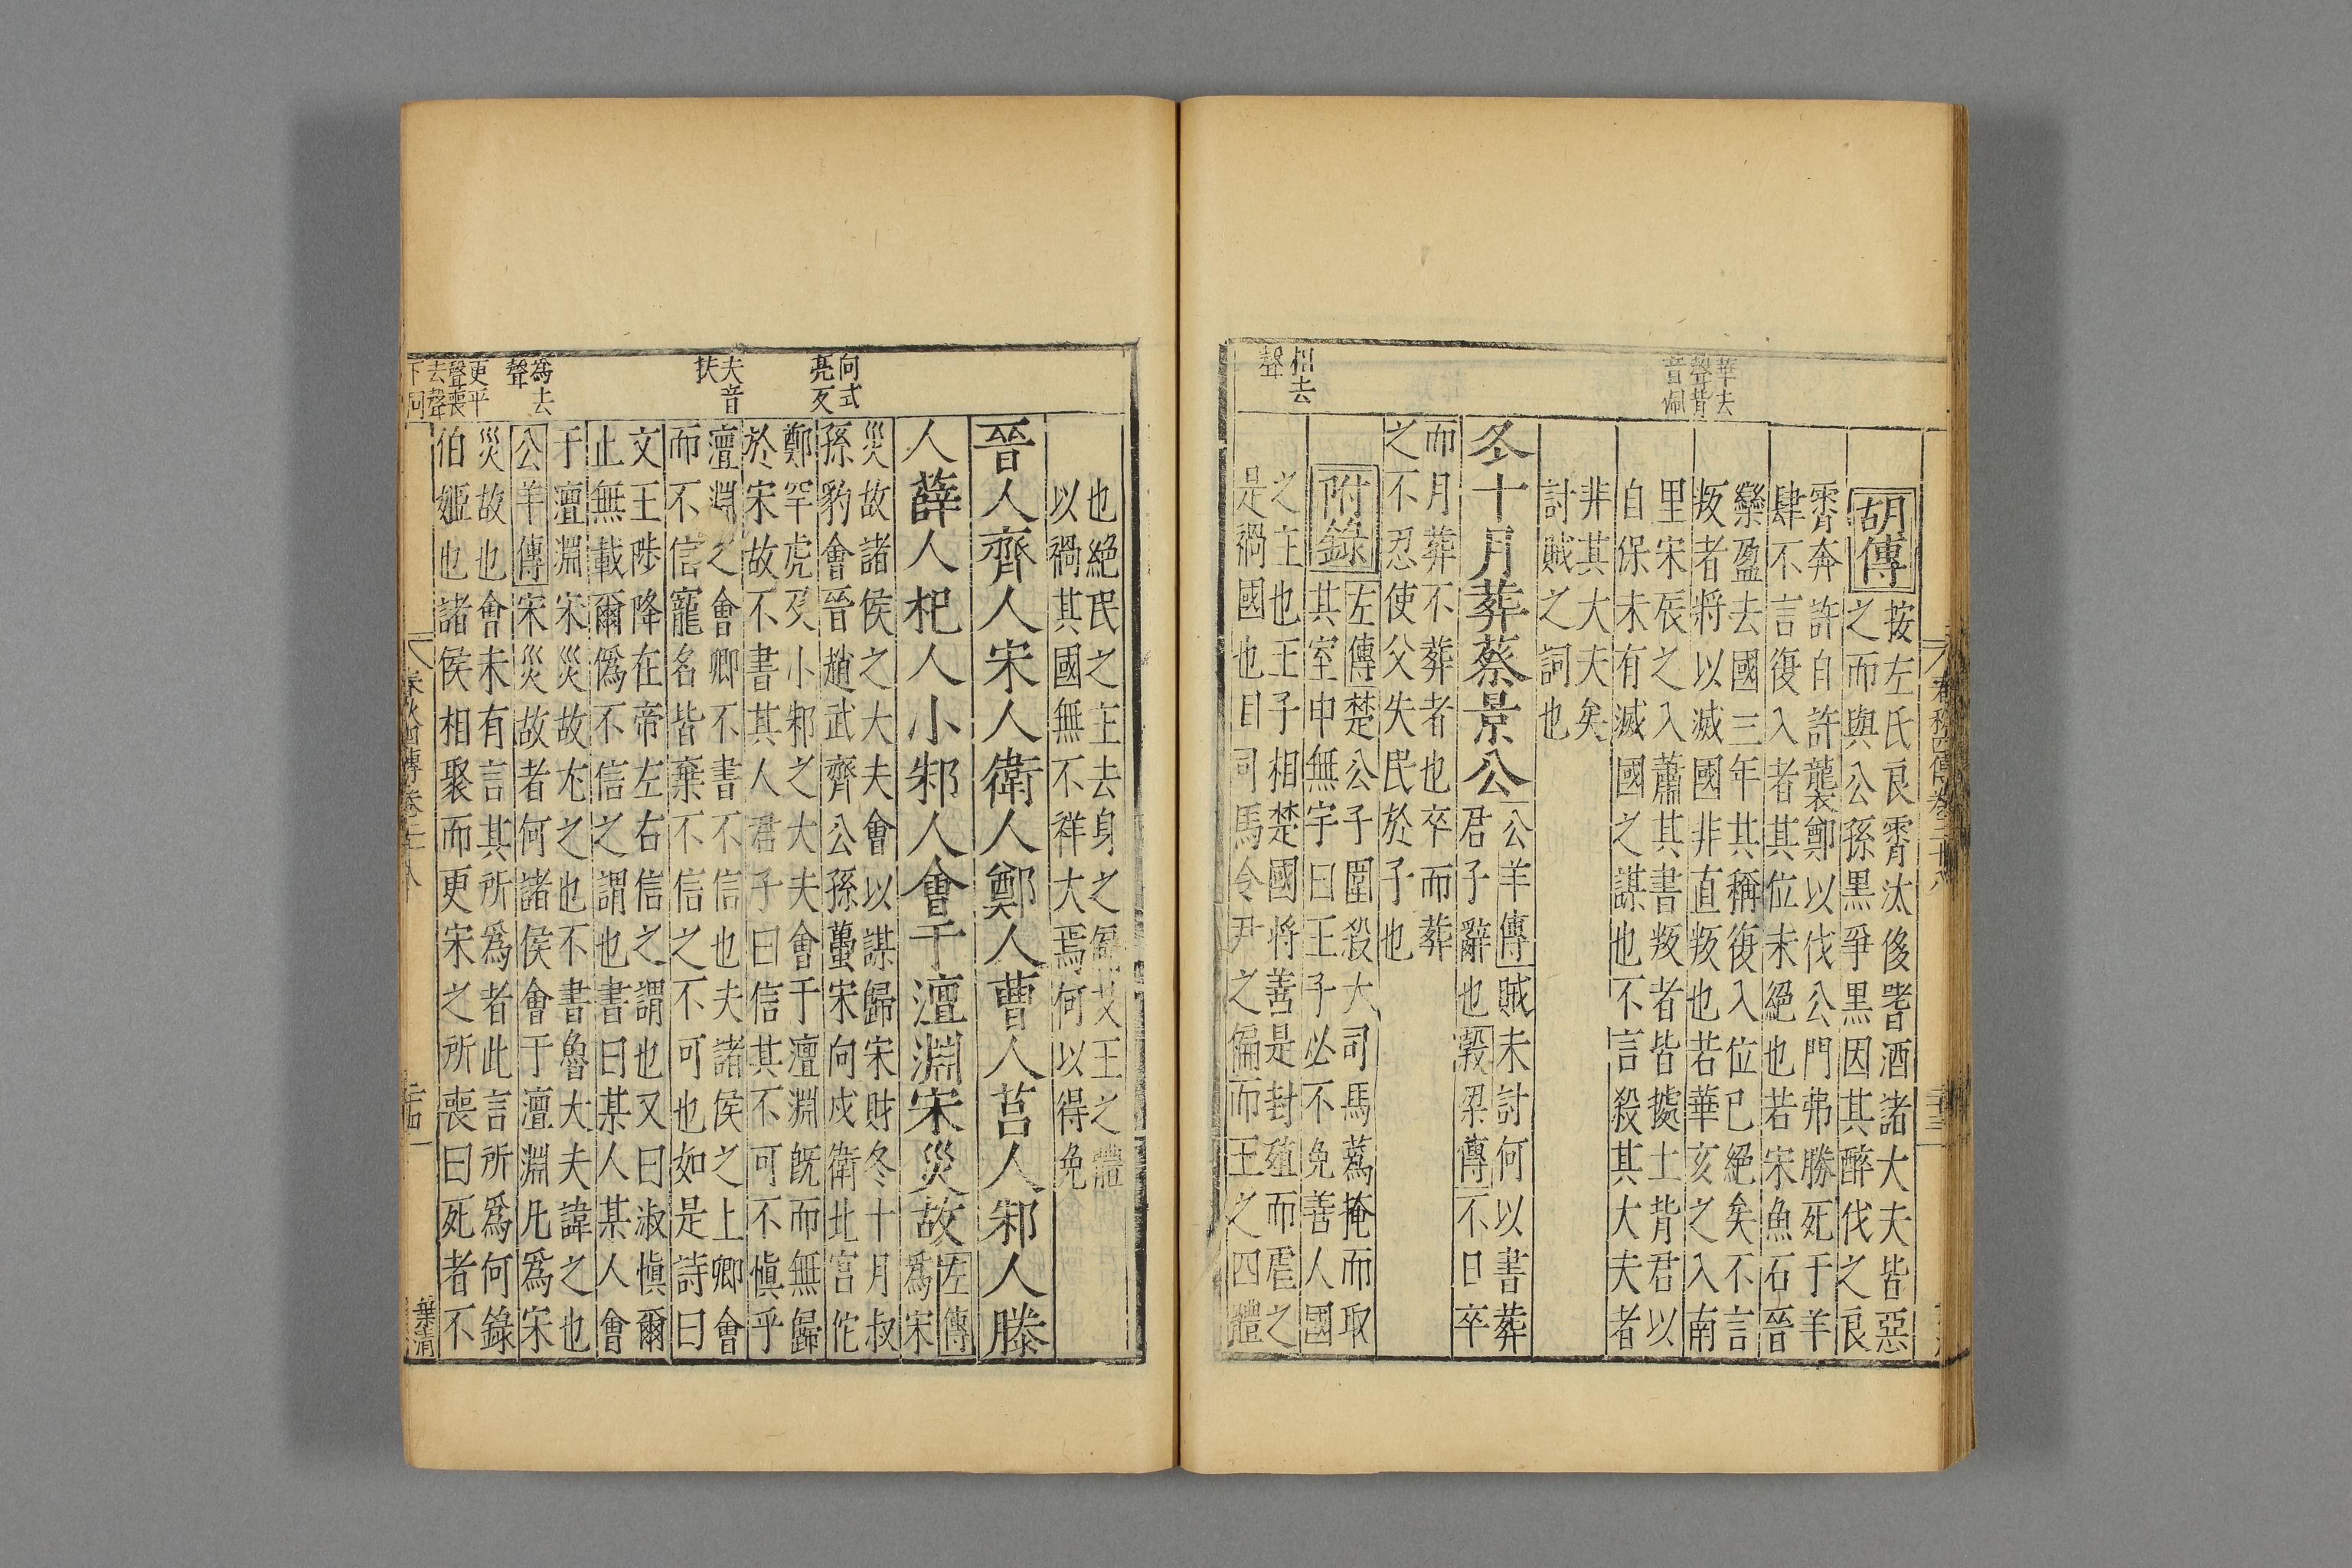 華去
聲背
音佩
相去
聲
胡傳
按左氏良霄汰侈嗜酒諸大夫皆惡
之而與公孫黑爭黑因其醉伐之良
霄奔許自許襲鄭以伐公門弗勝死于羊
肆不言復入者其位未絕也若宋魚石晉
欒盈去國三年其稱復入位已絕矣不言
叛者將以滅國非直叛也若華亥之入南
里宋辰之入蕭其書叛者皆據土背君以
自保未有滅國之謀也不言殺其大夫者
非其大夫矣
討賊之詞也
冬十月葬蔡景公
公羊傳賊未討何以書葬
君子辭也穀梁傳不日卒
而月葬不葬者也卒而葬
之不忍使父失民於子也
附錄
左傳楚公子圍殺大司馬蒍掩而取
其室申無宇曰王子必不免善人國
之主也王子相楚國將善是封殖而虐之
是禍國也且司馬令尹之偏而王之四體
春秋四傳卷二十八
二十三
向式
亮反
夫音
扶
爲去
聲
更平
聲喪
去聲
下同
也絕民之主去身之偏艾王之體
以禍其國無不祥大焉何以得免
晉人齊人宋人衛人鄭人曹人莒人邾人滕
人薛人杞人小邾人會于澶淵宋災故
左傳
爲宋
災故諸侯之大夫會以謀歸宋財冬十月叔
孫豹會晉趙武齊公孫蠆宋向戌衛北宮佗
鄭罕虎及小邾之大夫會于澶淵旣而無歸
於宋故不書其人君子曰信其不可不慎乎
澶淵之會卿不書不信也夫諸侯之上卿會
而不信寵名皆棄不信之不可也如是詩曰
文王陟降在帝左右信之謂也又曰淑慎爾
止無載爾僞不信之謂也書曰某人某人會
于澶淵宋災故尤之也不書魯大夫諱之也
公羊傳宋災故者何諸侯會于澶淵凡爲宋
災故也會未有言其所爲者此言所爲何錄
伯姬也諸侯相聚而更宋之所喪曰死者不
春秋四傳卷二十八
二十四
葉清